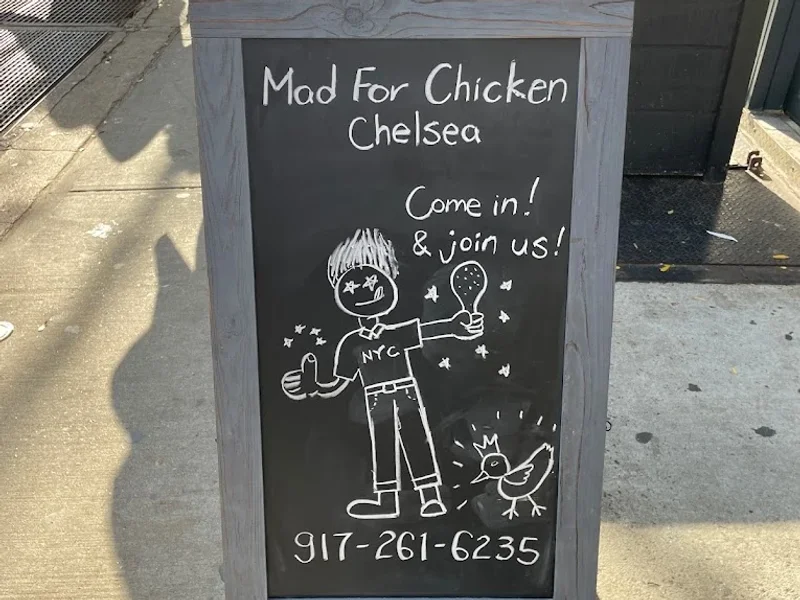 Mad For Chicken
Chelsea
Come in!
& join us!
NYC
917-261-6235